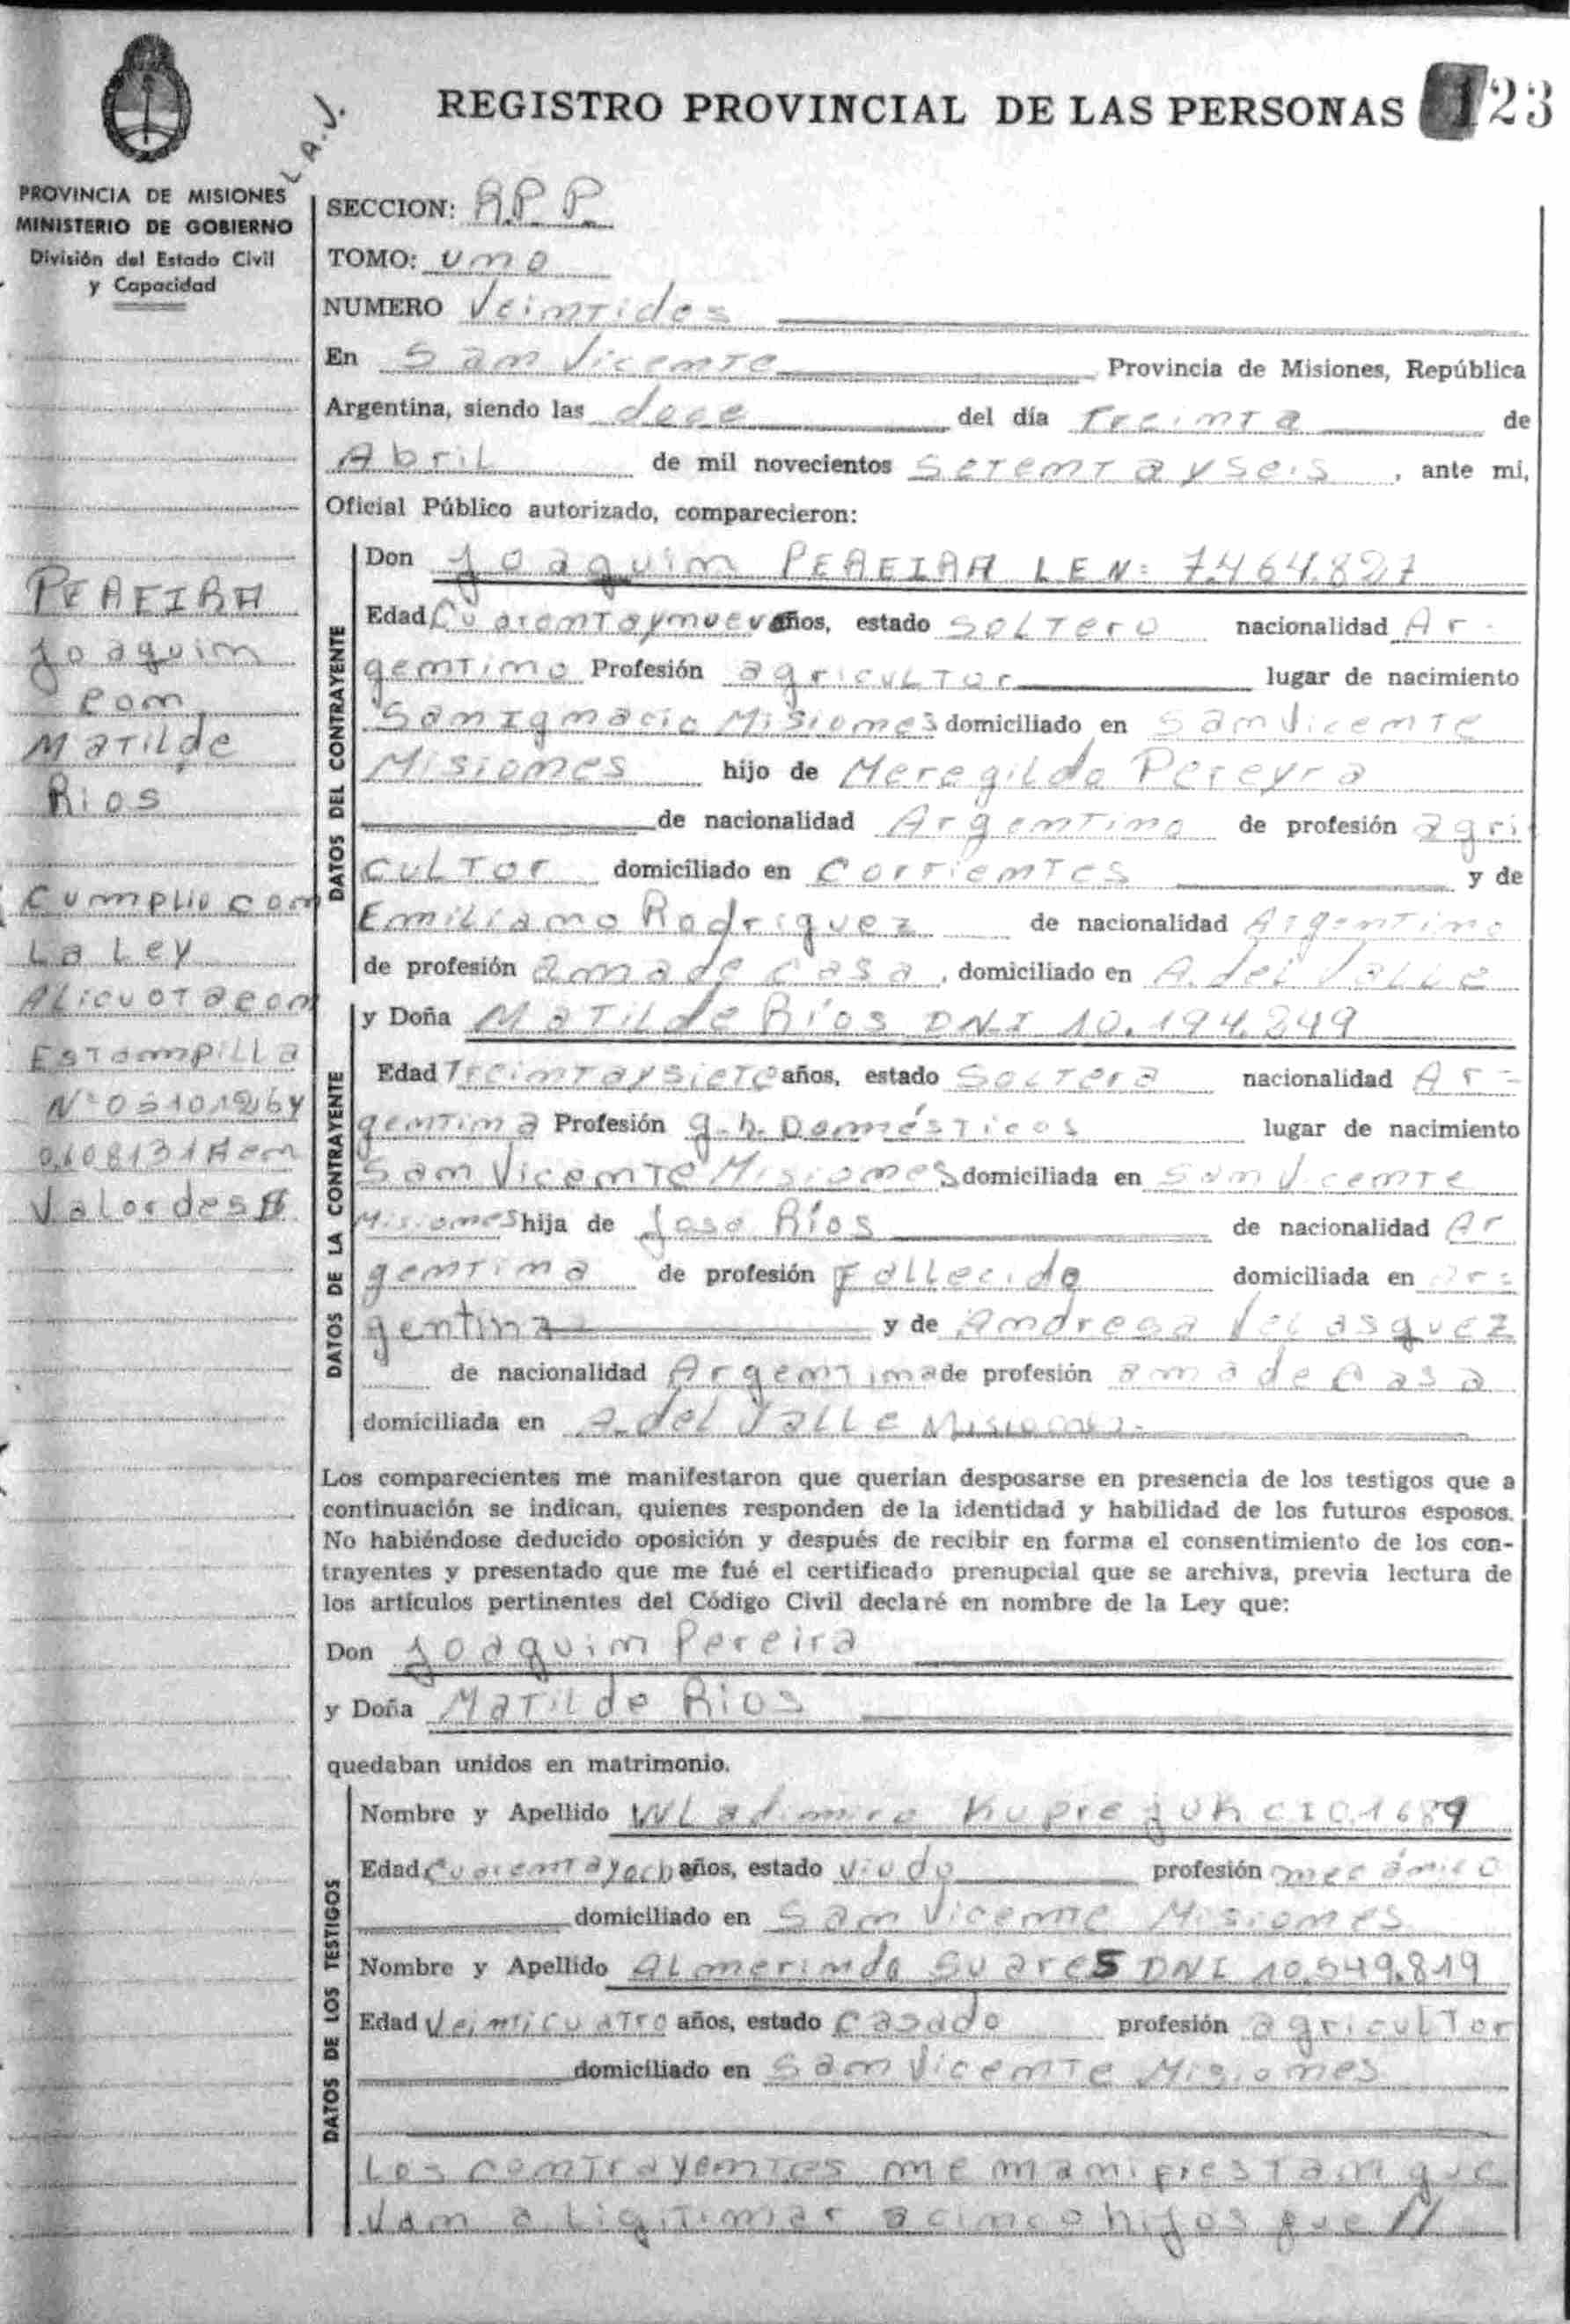 REGISTRO PROVINCIAL DE LAS PERSONAS 123
L.A.J.
PROVINCIA DE MISIONES
MINISTERIO DE GOBIERNO
División del Estado Civil
y Capacidad
PEREIRA
Joaquim
com
Matilde
Rios
Cumplio com
La Ley
Alicuota com
Estampilla
Nº 0510126 y
0608131A em
Valor des
SECCION: R.P.P.
TOMO: umo
NUMERO Veimtidos
En Sam Vicemte Provincia de Misiones, República
Argentina, siendo las doce del día Treimta de
Abril de mil novecientos Setemtayseis, ante mi,
Oficial Público autorizado, comparecieron:
DATOS DEL CONTRAYENTE
Don Joaquim PEREIRA L E Nº 7.464.827
Edad Cuaremtaymueve años, estado Soltero nacionalidad Ar-
gemtimo Profesión agricultor lugar de nacimiento
Sam Igmacio Misiomes domiciliado en Sam Vicemte
Misiomes hijo de Meregildo Pereyra
de nacionalidad Argemtimo de profesión agri
cultor domiciliado en Corriemtes y de
Emiliamo Rodriguez de nacionalidad Argemtimo
de profesión ama de casa, domiciliado en A. del Valle
DATOS DE LA CONTRAYENTE
y Doña Matilde Ríos DNI 10.194.249
Edad Treimtaysiete años, estado Soltera nacionalidad Ar-
gemtima Profesión q.h. Domésticos lugar de nacimiento
Sam Vicemte Misiomes domiciliada en Sam Vicemte
Misiomes hija de José Ríos de nacionalidad Ar
gemtima de profesión Fallecido domiciliada en Ar-
gentina y de Amdresa Velasquez
de nacionalidad Argemtima de profesión ama de casa
domiciliada en A. del Valle Misiones
Los comparecientes me manifestaron que querían desposarse en presencia de los testigos que a
continuación se indican, quienes responden de la identidad y habilidad de los futuros esposos.
No habiéndose deducido oposición y después de recibir en forma el consentimiento de los con-
trayentes y presentado que me fué el certificado prenupcial que se archiva, previa lectura de
los artículos pertinentes del Código Civil declaré en nombre de la Ley que:
Don Joaquim Pereira
y Doña Matilde Rios
quedaban unidos en matrimonio.
DATOS DE LOS TESTIGOS
Nombre y Apellido WLadimiro Kuprejuk CI 01689
Edad Cuaremtayocho años, estado viudo profesión mecámico
domiciliado en Sam Vicemte Misiomes
Nombre y Apellido Almerimdo Suares DNI 10.549.819
Edad Veimticuatro años, estado casado profesión agricultor
domiciliado en Sam Vicemte Misiomes
Los comtrayemtes me mamifiestam que
vam a ligitimar a cimco hijos que //